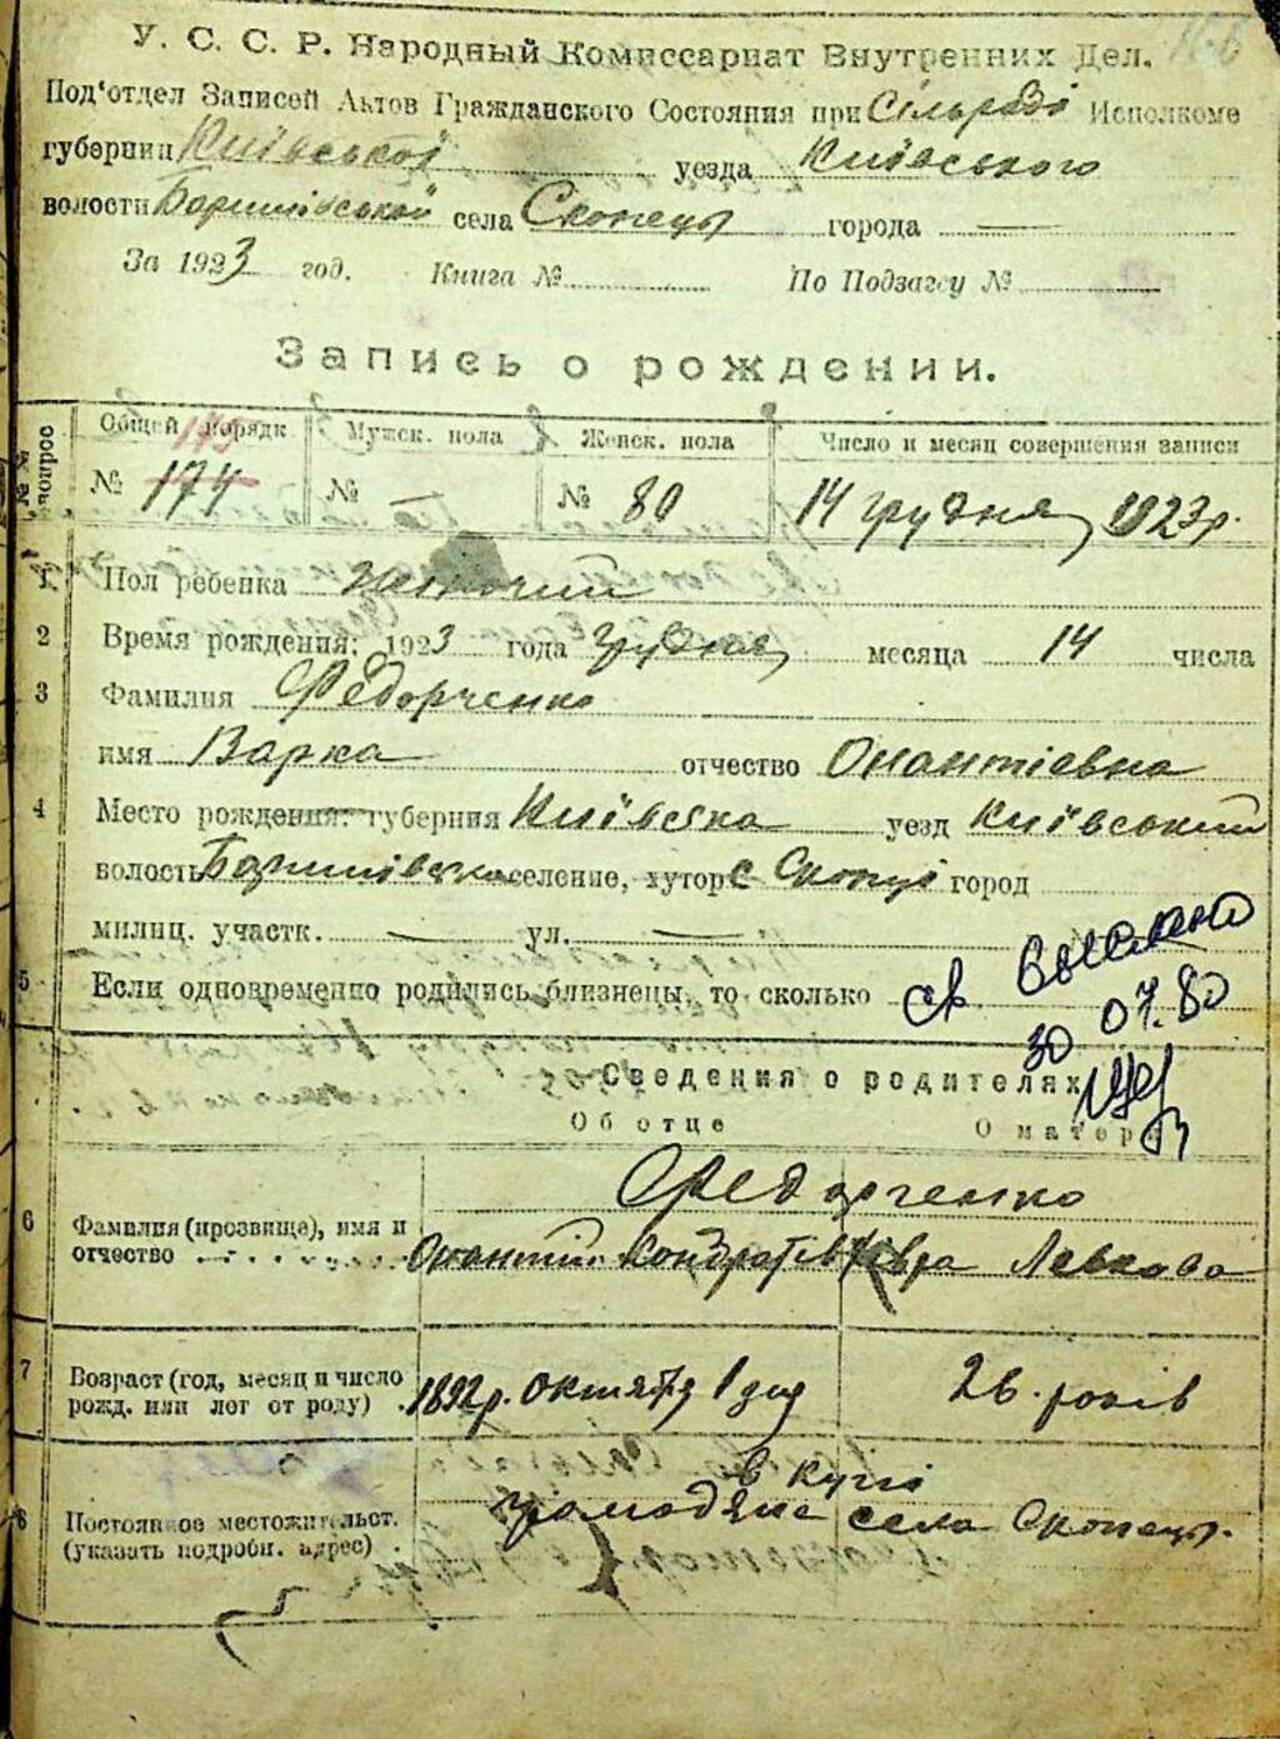 У. С. С. Р. Народный Комиссариат Внутренних Дел.
Под'отдел Записей Актов Гражданского Состояния при Сільраді Исполкоме
губернии Київської уезда Київського
волости Баришівської села Скопець города —
За 1923 год. Книга № По Подзагсу №
Запись о рождении.
№№ вопрос Общей порядк Мужск. пола Женск. пола Число и месяц совершения записи
175
№ 174 № — № 80 14 грудня 1923 р.
1 Пол ребенка жіночий
2 Время рождения: 1923 года грудня месяца 14 числа
3 Фамилия Федорченко
имя Варка отчество Онантіевна
4 Место рождения: губерния Київська уезд Київський
волость Баришівська селение, хутор с Скопці город
милиц. участк. — ул. —
5 Если одновременно родились близнецы, то сколько
св выслано
30 07. 80
Сведения о родителях
Об отце О матери
Федорченко
6 Фамилия (прозвище), имя и
отчество Онантій Кондратів Хівря Левкова
7 Возраст (год, месяц и число
рожд. или лет от роду) 1892 р. октября 1 дня 26 років
в купі
8 Постоянное местожительст. громодяне села Скопець.
(указать подробн. адрес)